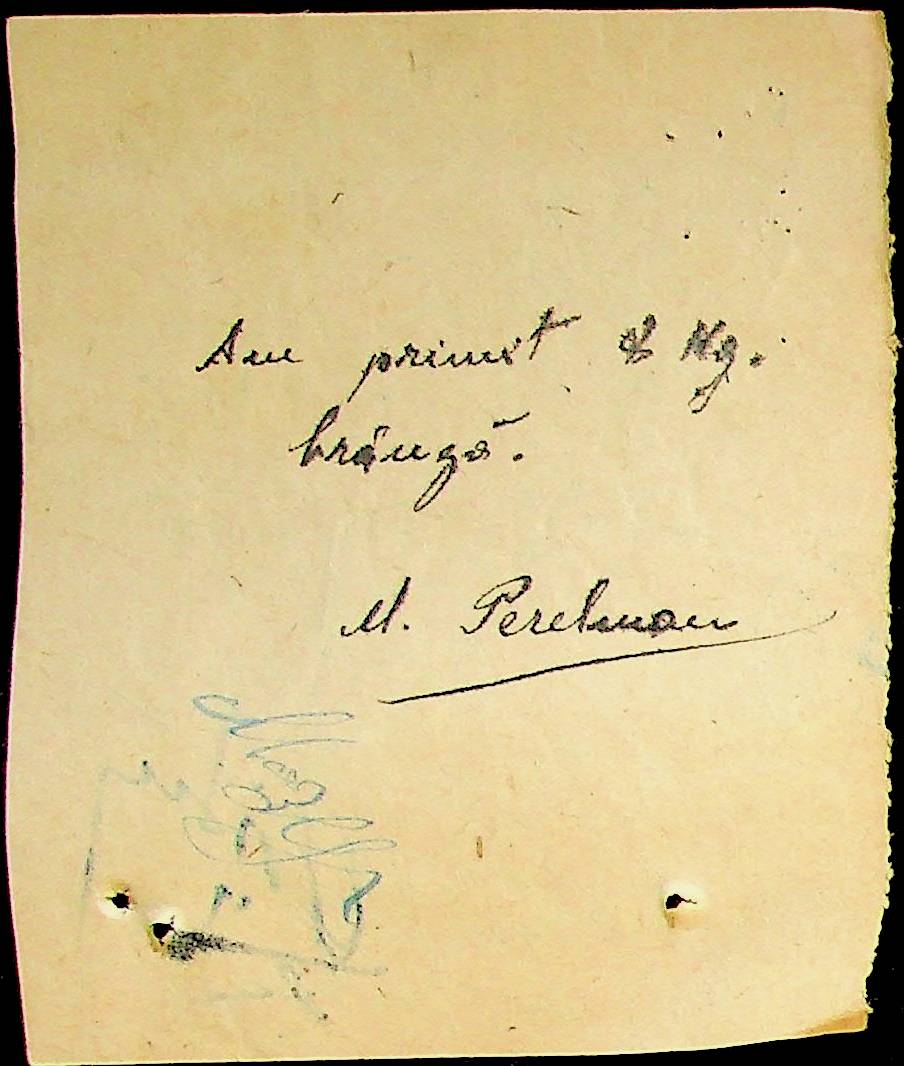 Am primit 8 Kg.
brânză.
M. Perelman